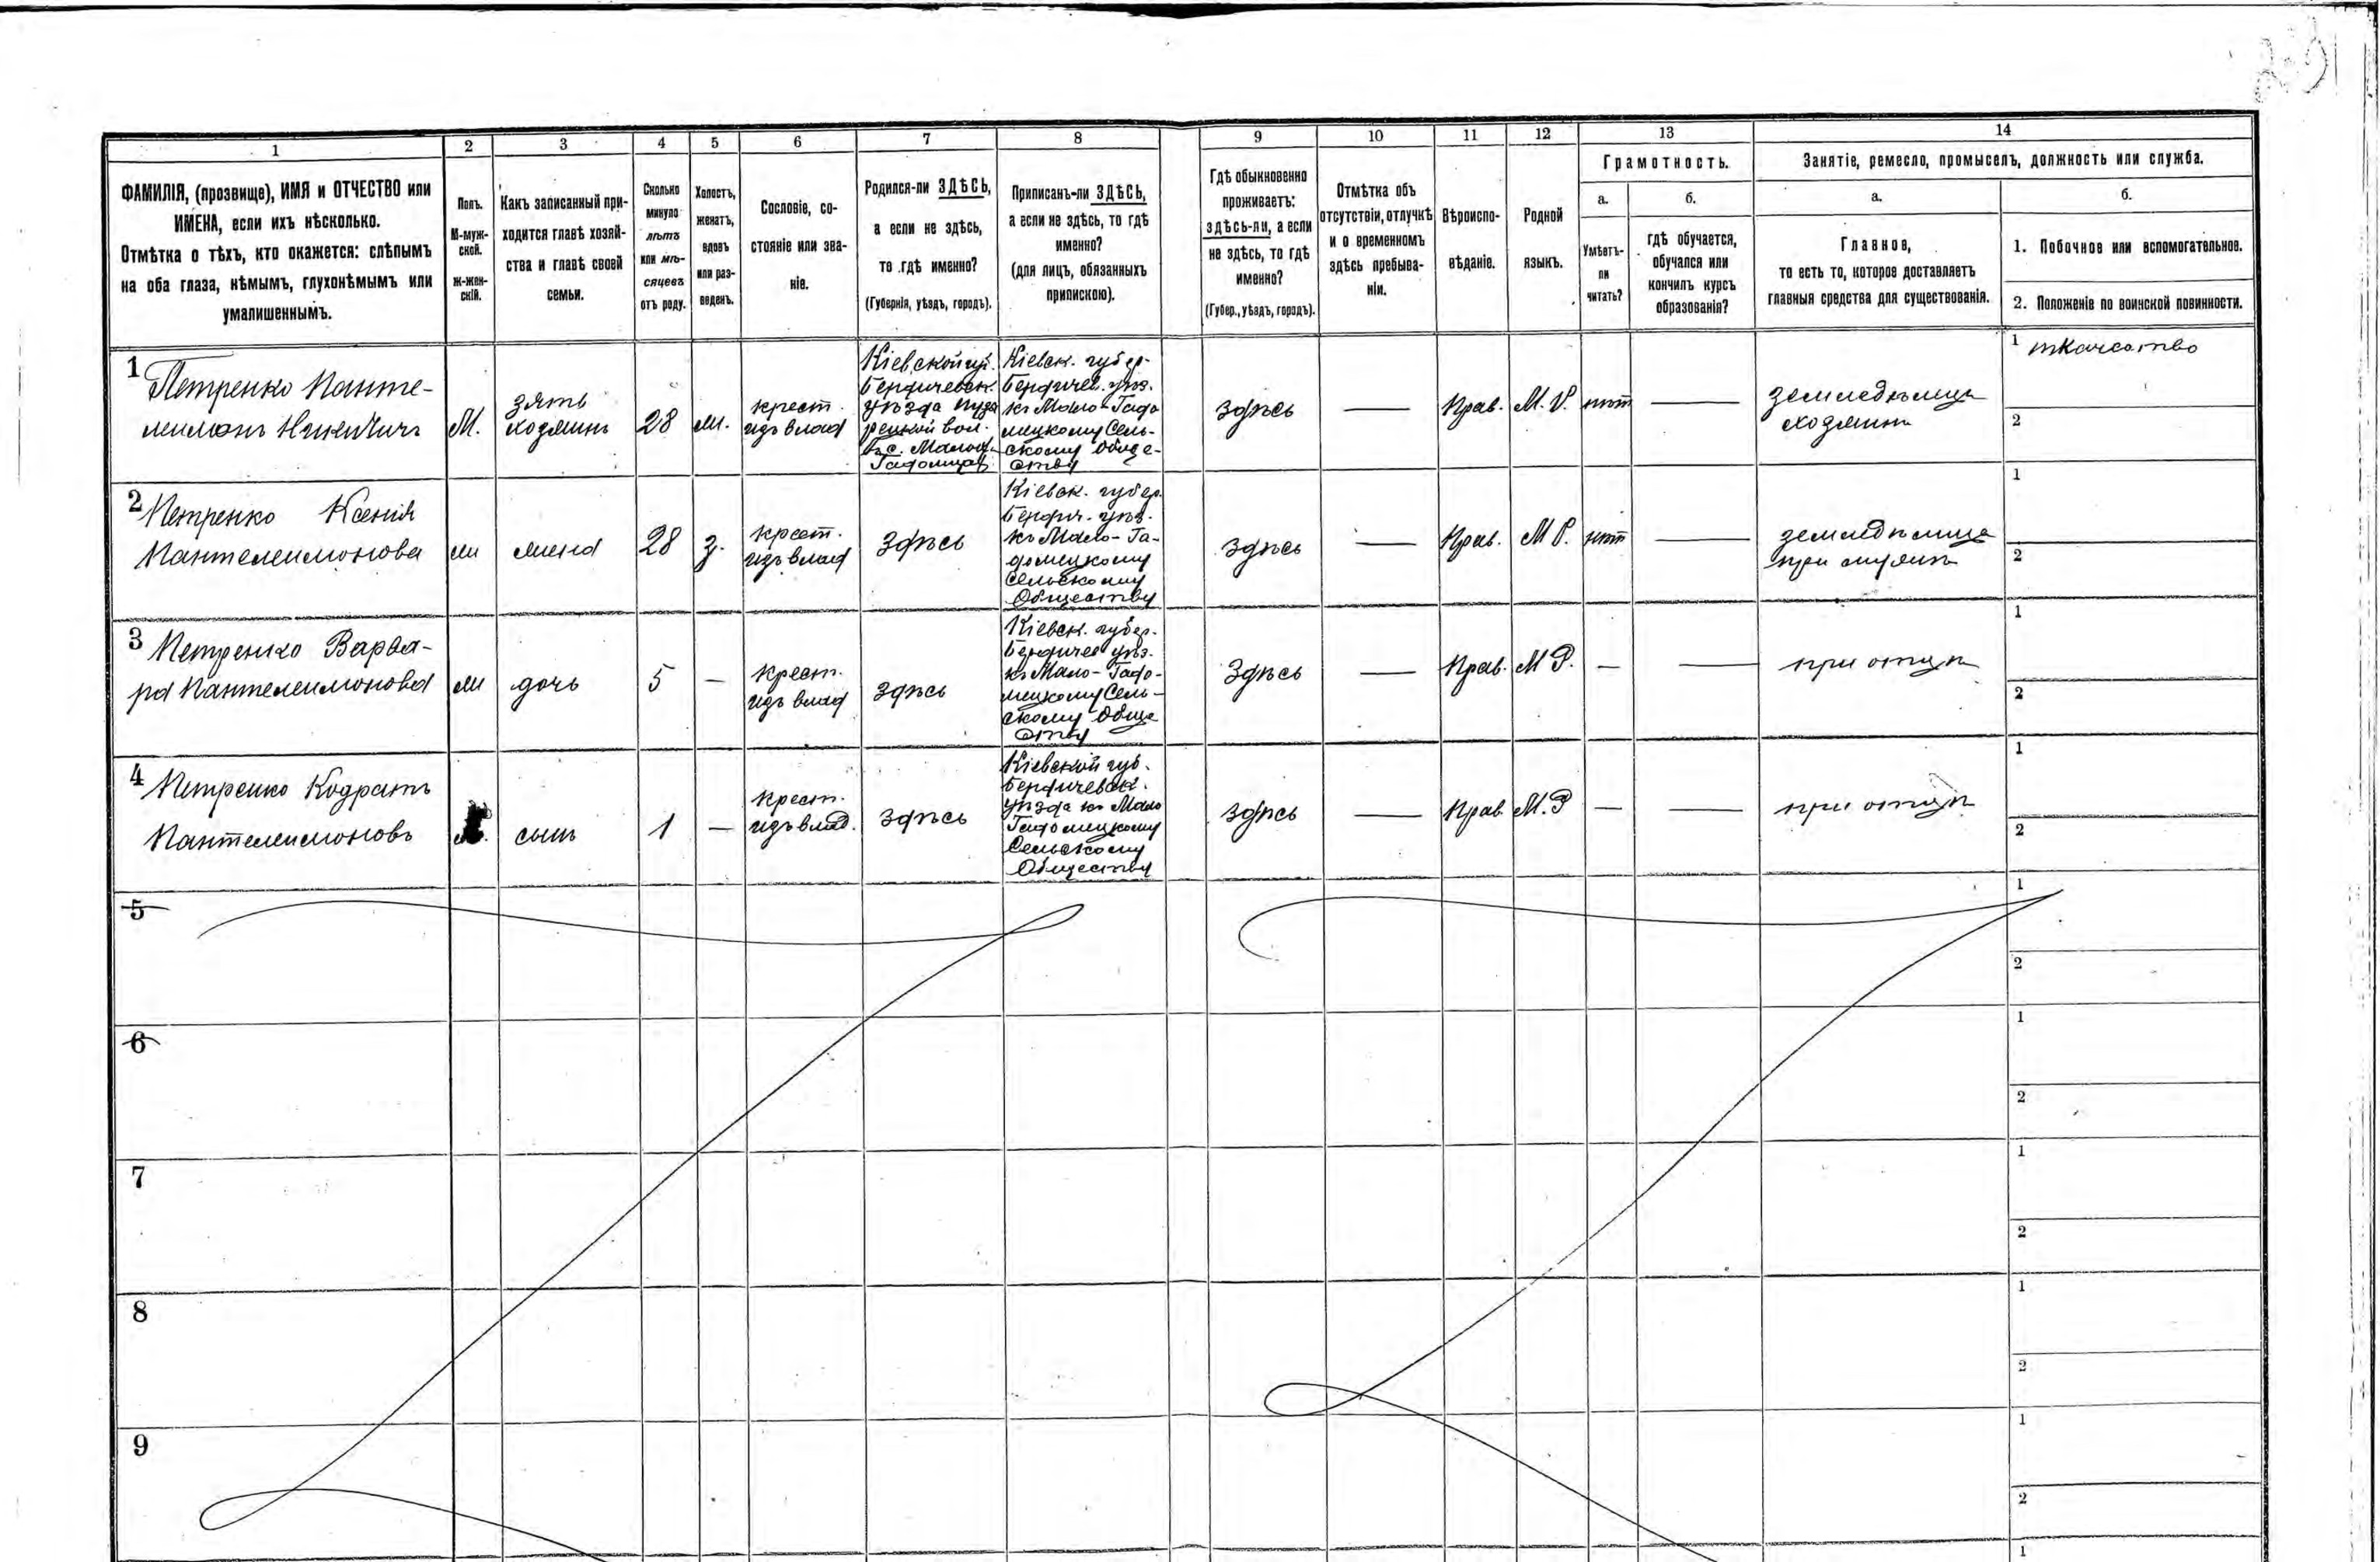 1
2
3
4
5
6
7
8
9
10
11
12
13
14
ФАМИЛІЯ, (прозвище), ИМЯ и ОТЧЕСТВО или
ИМЕНА, если ихъ нѣсколько.
Отмѣтка о тѣхъ, кто окажется: слѣпымъ
на оба глаза, нѣмымъ, глухонѣмымъ или
умалишеннымъ.
Полъ.
М-муж-
ской.
Ж-жен-
скій.
Какъ записанный при-
ходится главѣ хозяй-
ства и главѣ своей
семьи.
Сколько
минуло
лѣтъ
или мѣ-
сяцевъ
отъ роду.
Холостъ,
женатъ,
вдовъ
или раз-
веденъ.
Сословіе, со-
стояніе или зва-
ніе.
Родился-ли ЗДѢСЬ,
а если не здѣсь,
то гдѣ именно?
(Губернія, уѣздъ, городъ).
Приписанъ-ли ЗДѢСЬ,
а если не здѣсь, то гдѣ
именно?
(для лицъ, обязанныхъ
припискою).
Гдѣ обыкновенно
проживаетъ:
здѣсь-ли, а если
не здѣсь, то гдѣ
именно?
(Губер., уѣздъ, городъ).
Отмѣтка объ
отсутствіи, отлучкѣ
и о временномъ
здѣсь пребыва-
ніи.
Вѣроиспо-
вѣданіе.
Родной
языкъ.
Грамотность.
а.
Умѣетъ-
ли
читать?
б.
гдѣ обучается,
обучался или
кончилъ курсъ
образованія?
Занятіе, ремесло, промыселъ, должность или служба.
а.
Главное,
то есть то, которое доставляетъ
главныя средства для существованія.
б.
1. Побочное или вспомогательное.
2. Положеніе по воинской повинности.
1 Петренко Панте-
леимонъ Никитичъ
М.
зять
хозяинъ
28
ж.
крест.
изъ влад
Кіевской гу.
Бердичевск.
уѣзда
рецкой вол.
въ с. Малой
Кіевск. губер-
Бердичев. уѣз.
къ Мало-Гадо
мецкому Сель-
скому Обще-
ству
здѣсь
—
Прав.
М. Р.
нѣт
—
земледѣлецъ
хозяинъ
1 ткачество
2
2 Петренко Ксенія
Пантелеимонова
ж
жена
28
з.
крест.
изъ влад
здѣсь
Кіевск. губер.
Бердич. уѣз.
къ Мало-Га-
домецкому
Сельскому
Обществу
здѣсь
—
Прав.
М Р.
нѣт
—
земледѣлица
при мужѣ
1
2
3 Петренко Варва-
ра Пантелеимонова
ж
дочь
5
—
крест.
изъ влад
здѣсь
Кіевск. губер-
Бердичев уѣз.
къ Мало-Гадо-
мецкому Сель-
скому Обще
ству
здѣсь
—
Прав.
М Р.
—
—
при отцѣ
1
2
4 Петренко Кодратъ
Пантелеимоновъ
сынъ
1
—
крест.
изъ влад.
здѣсь
Кіевской губ.
Бердичевск.
уѣзда къ Мало
Гадомецкому
Сельскому
Обществу
здѣсь
—
Прав.
М. Р
—
—
при отцѣ
1
2
5
1
2
6
1
2
7
1
2
8
1
2
9
1
2
1